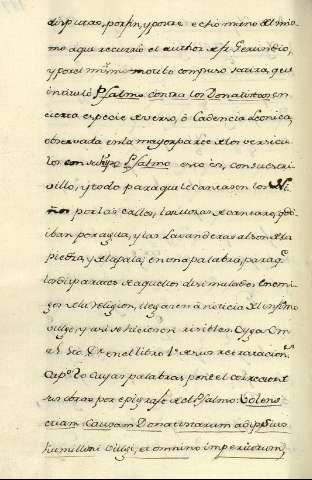 disputas, por fin, y postre echo mano del mis-
mo aqui recurrió el author de fr Gerundio,
y por el mismo motibo compuso satira, que
intituló Psalmo contra los Donatistas, en
cierta especie de verso, ô Cadencia Leonica,
observada en la mayor parte de los versicu-
los con su Psalmo en su estri-
villo, y todo para que le cantasen los Ni-
ños por las calles, las mozas de cantaro, qdo
iban por agua, y las Lavanderas al son de la
piedra, y de la pala, en una palabra, para qe
los disparates de aquellos disimulados enemi-
gos de la religion, llegasen à noticia del infimo
vulgo, y asi se hiciesen risibles. Oyga Vm
al Sto. Dr. en el libro 1º de sus retractacions
Capº. 20 cuyas palabras, pone el colector de
sus obras por epigrafe de el Psalmo: Volens
etiam Causam Donatistarum ad ipsius
humillimi Vulgi, et omnino imperitorum,